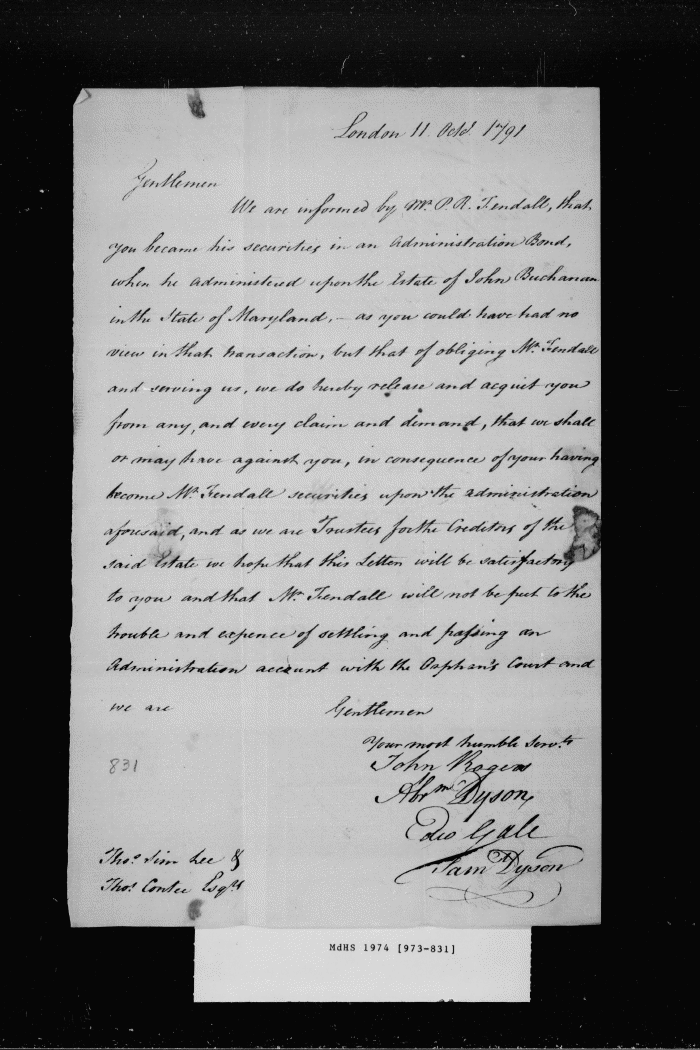 London 11 Octr. 1791
Gentlemen
We are informed by Mr. P. R. Fendall, that
you became his securities in an Administration Bond,
when he administered upon the Estate of John Buchanan
in the State of Maryland, - as you could have had no
view in that transaction, but that of obliging Mr. Fendall
and serving us, we do hereby release and acquit you
from any, and every claim and demand, that we shall
or may have against you, in consequence of your having
become Mr. Fendall securities upon the administration
aforesaid, and as we are Trustees for the Creditors of the
said Estate we hope that this Letter will be satisfactory
to you and that Mr. Fendall will not be put to the
trouble and expence of settling and passing an
Administration account with the Orphan's Court and
we are
Gentlemen
Your most humble Servts
John Rogers
Abrm Dyson
Edw Gale
Sam Dyson
831
Thos. Sim Lee &
Thos. Contee Esqrs
MdHS 1974 [973-831]